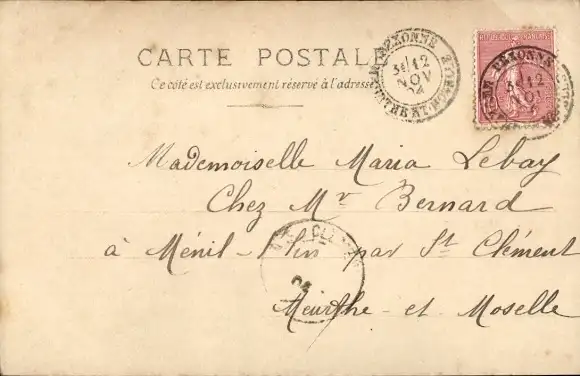 CARTE POSTALE
Ce côté est exclusivement réservé à l'adresse
REPUBLIQUE FRANÇAISE
31 12
NOV
04
12
NOV
Mademoiselle Maria Lebay
Chez Mr Bernard
à Ménil-Flin par St Clément
04
Meurthe-et-Moselle